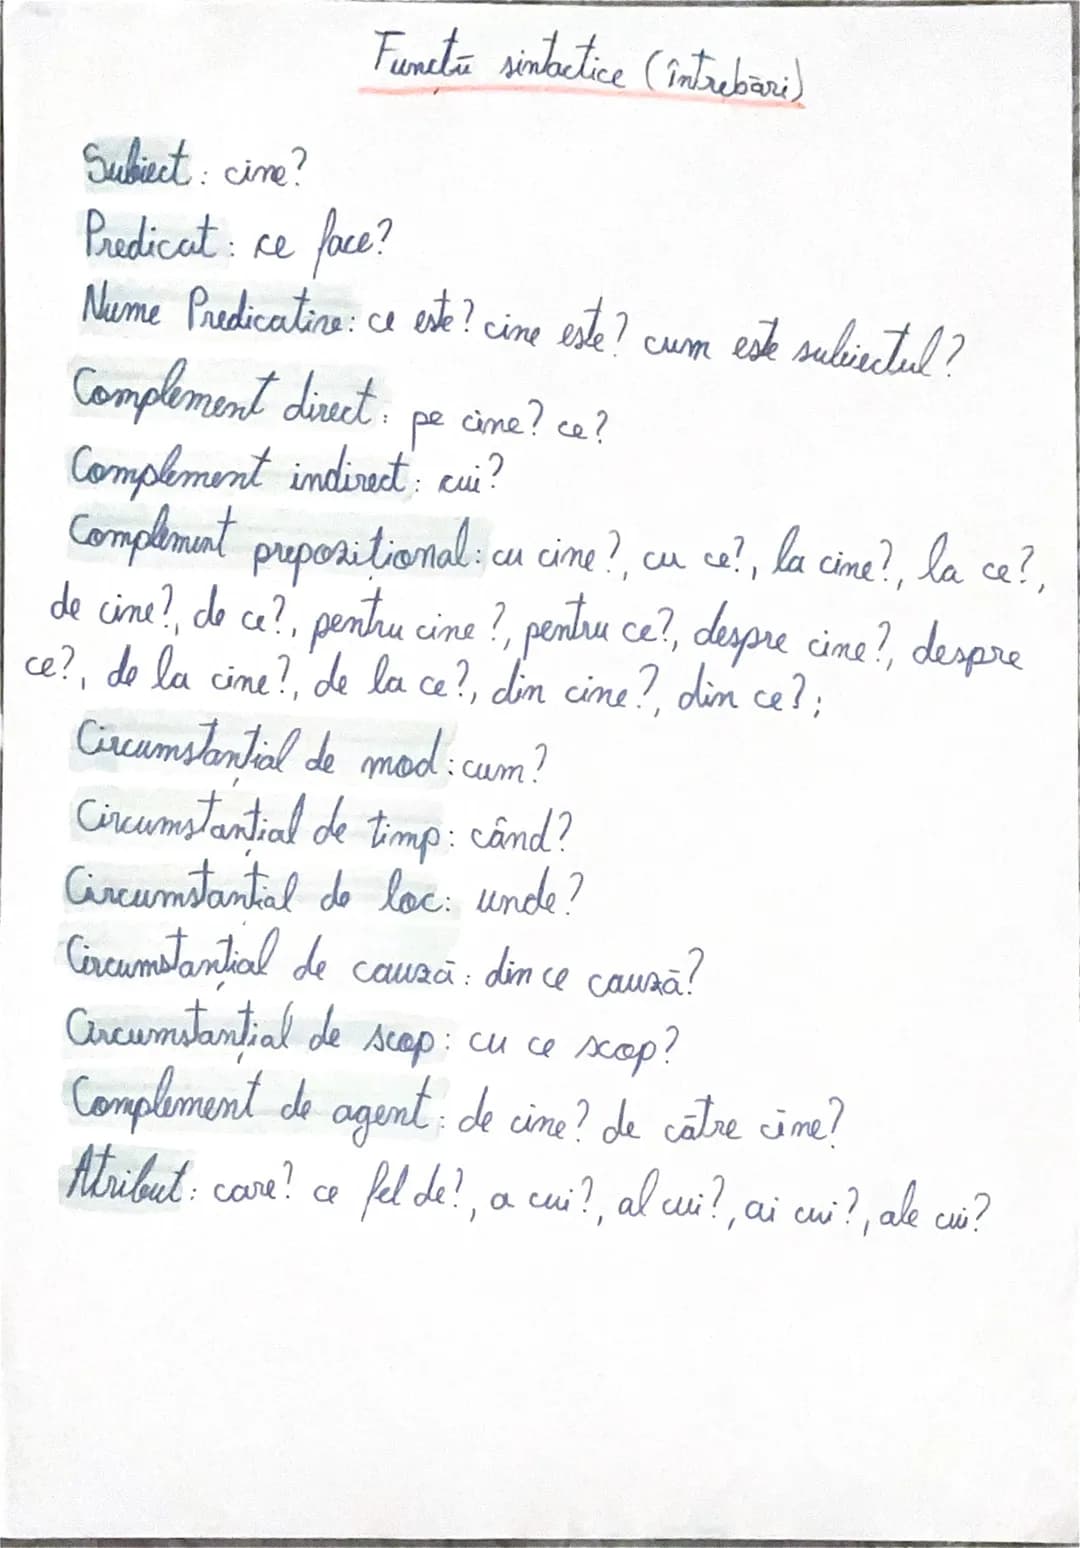 Funcții sintactice (întrebări)
Subiect: cine?
Predicat: ce face?
Nume Predicative: ce este? cine este? cum este subiectul?
Complement direct: pe cine? ce?
Complement indirect: cui?
Complement prepozițional: cu cine?, cu ce?, la cine?, la ce?,
de cine?, de ce?, pentru cine?, pentru ce?, despre cine?, despre
ce?, de la cine?, de la ce?, din cine?, din ce?;
Circumstanțial de mod: cum?
Circumstanțial de timp: când?
Circumstanțial de loc: unde?
Circumstanțial de cauză: din ce cauză?
Circumstanțial de scop: cu ce scop?
Complement de agent: de cine? de către cine?
Atribut: care? ce fel de?, a cui?, al cui?, ai cui?, ale cui?